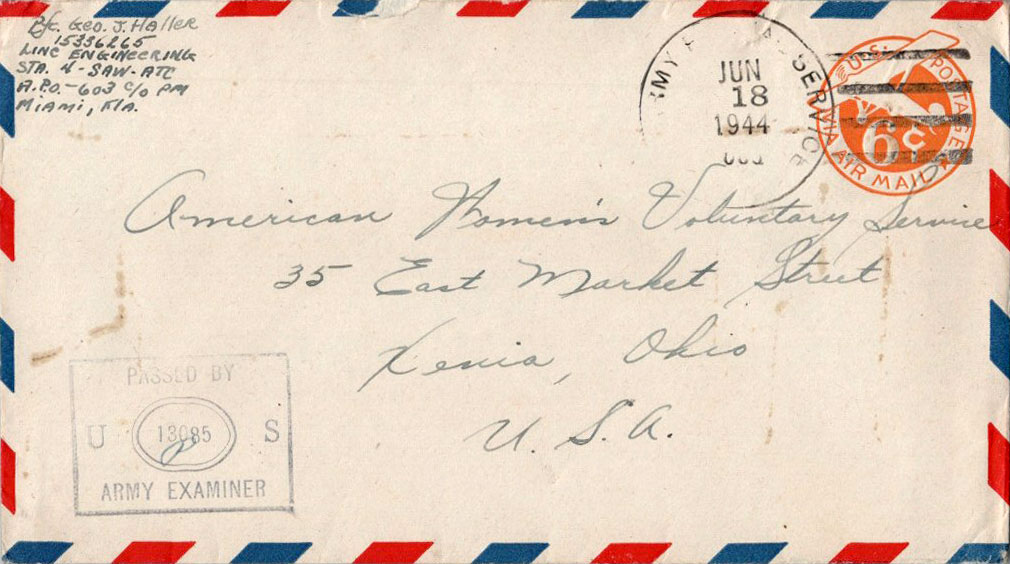 Pfc. Geo. J. Haller
15336265
LINE ENGINEERING
STA. 4 - SAW - ATC
A.P.O. - 603 c/o PM
MIAMI, FLA.
JUN
18
1944
SERVICE
U.S. POSTAGE
6¢
VIA AIR MAIL
American Women's Voluntary Service
35 East Market Street
Xenia, Ohio
U. S. A.
PASSED BY
U 13085 S
ARMY EXAMINER